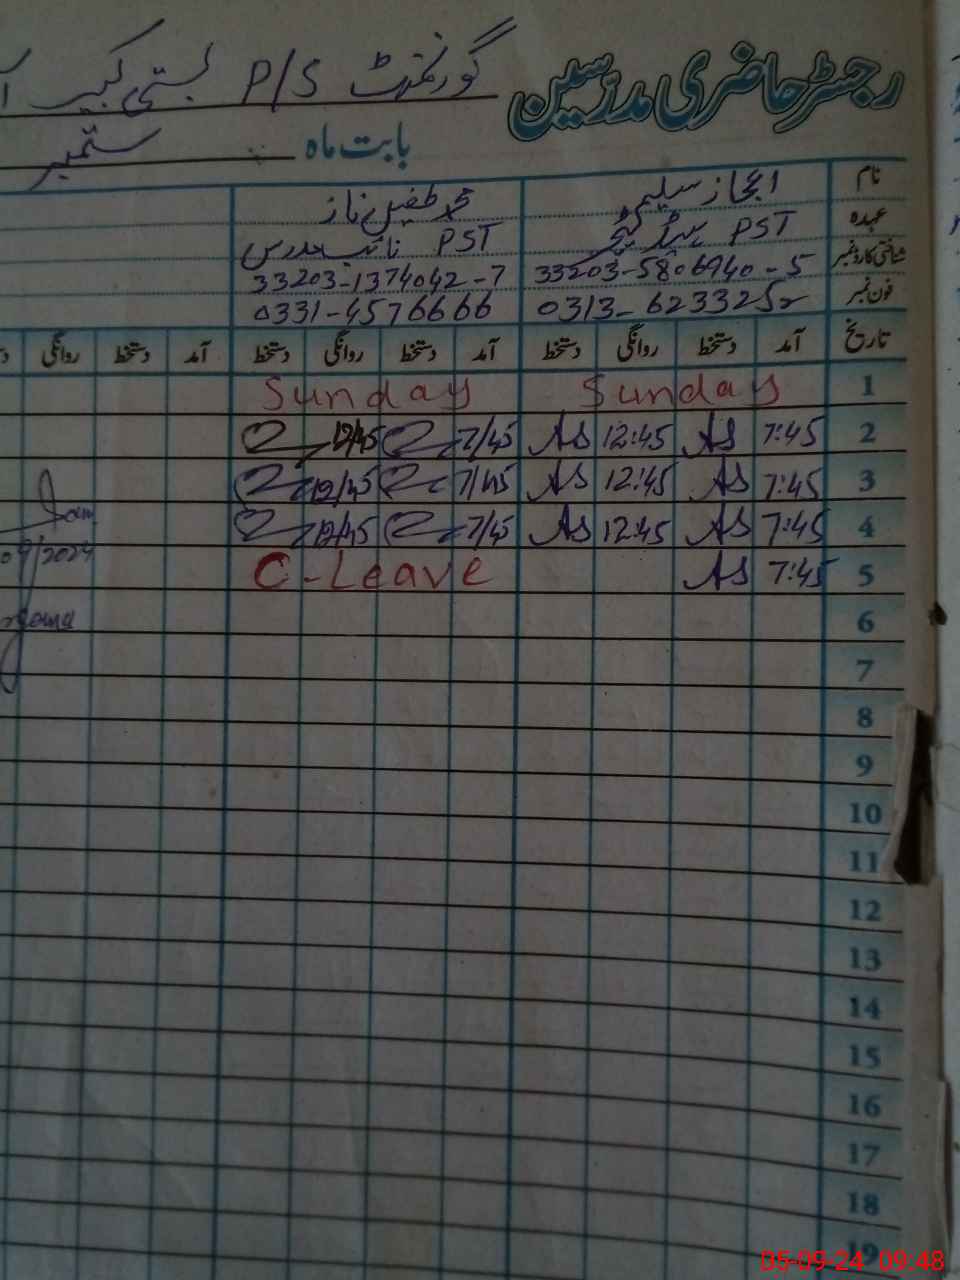 رجسٹر حاضری مدرسین گورنمنٹ P/S بستی کبیر
بابت ماہ ستمبر
نام اعجاز سلیم محمد طفیل ناز
عہدہ PST ہیڈ ٹیچر PST نائب مدرس
شناختی کارڈ نمبر 33203-5806940-5 33203-1374042-7
فون نمبر 0313-6233252 0331-4576666
تاریخ آمد دستخط روانگی دستخط آمد دستخط روانگی دستخط آمد دستخط روانگی
1 Sunday Sunday
2 7:45 AS 12:45 AS 7/45 12/45
3 7:45 AS 12:45 AS 7/45 12/45
4 7:45 AS 12:45 AS 7/45 12/45
5 7:45 AS C-Leave
09/2024
6
7
8
9
10
11
12
13
14
15
16
17
18
19
05-09-24 09:48